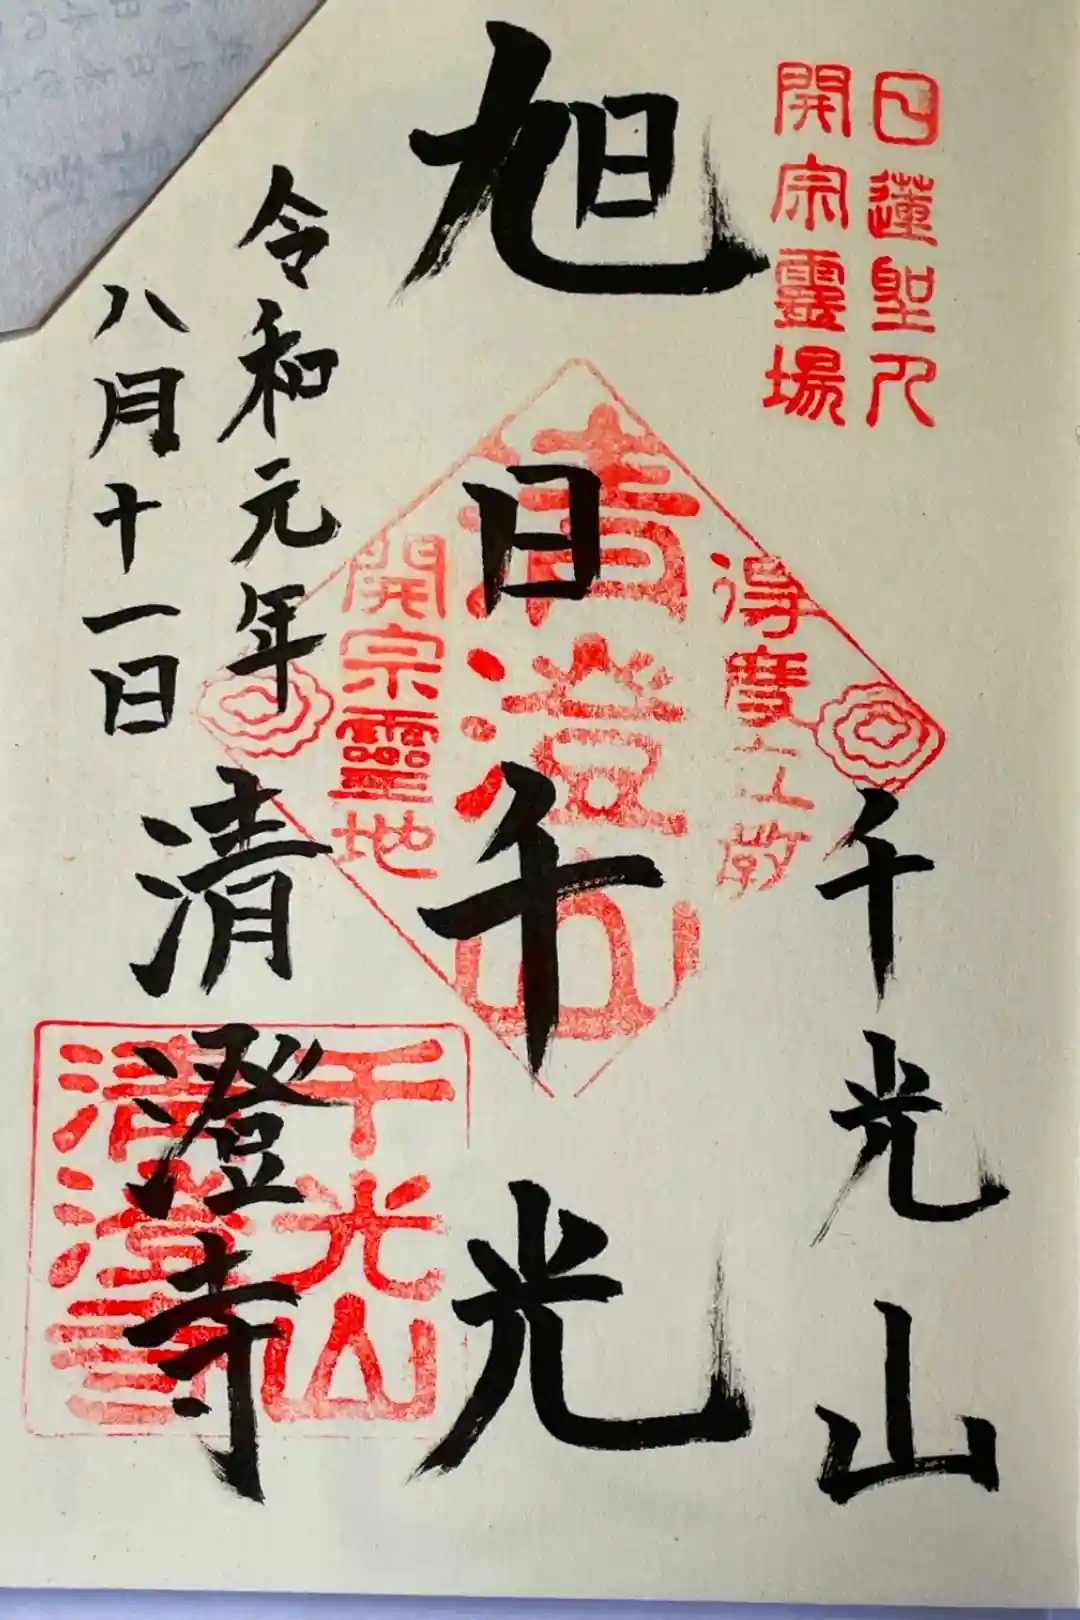 日蓮聖人
開宗靈場
千光山
旭日千光
得度立教
清澄山
開宗靈地
令和元年
八月十一日
清澄寺
千光山
清澄寺